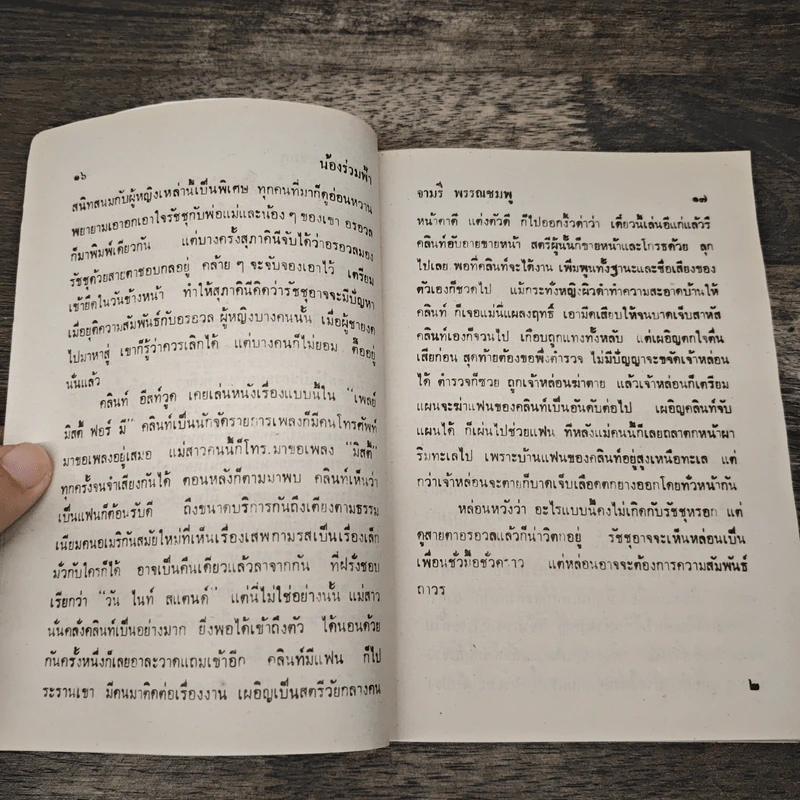 ๑๖
น้องร่วมฟ้า
สนิทสนมกับผู้หญิงเหล่านี้เป็นพิเศษ ทุกคนที่มาก็ดูอ่อนหวาน
พยายามเอาอกเอาใจรัชชุกับพ่อแม่และน้อง ๆ ของเขา อรอวล
ก็มาพิมพ์เดียวกัน แต่บางครั้งสุภาคินีจับได้ว่าอรอวลมอง
รัชชุด้วยสายตาชอบกลอยู่ คล้าย ๆ จะจับจองเอาไว้ เตรียม
เข้ายึดในวันข้างหน้า ทำให้สุภาคินีคิดว่ารัชชุอาจจะมีปัญหา
เมื่อยุติความสัมพันธ์กับอรอวล ผู้หญิงบางคนนั้น เมื่อผู้ชายงด
ไปมาหาสู่ เขาก็รู้ว่าควรเลิกได้ แต่บางคนก็ไม่ยอม ดื้ออยู่
นั่นแล้ว
คลินท์ อีสท์วูด เคยเล่นหนังเรื่องแบบนี้ใน "เพลย์
มิสตี้ ฟอร์ มี" คลินท์เป็นนักจัดรายการเพลงก็มีคนโทรศัพท์
มาขอเพลงอยู่เสมอ แม่สาวคนนี้ก็โทร.มาขอเพลง "มิสตี้"
ทุกครั้งจนจำเสียงกันได้ ตอนหลังก็ตามมาพบ คลินท์เห็นว่า
เป็นแฟนก็ต้อนรับดี ถึงขนาดบริการกันถึงเตียงตามธรรม
เนียมคนอเมริกันสมัยใหม่ที่เห็นเรื่องเสพกามรสเป็นเรื่องเล็ก
มั่วกับใครก็ได้ อาจเป็นคืนเดียวแล้วลาจากกัน ที่ฝรั่งชอบ
เรียกว่า "วัน ไนท์ สแตนด์" แต่นี่ไม่ใช่อย่างนั้น แม่สาว
นั่นคลั่งคลินท์เป็นอย่างมาก ยิ่งพอได้เข้าถึงตัว ได้นอนด้วย
กันครั้งหนึ่งก็เลยอาละวาดแถมเข้าอีก คลินท์มีแฟน ก็ไป
ระรานเขา มีคนมาติดต่อเรื่องงาน เผอิญเป็นสตรีวัยกลางคน
จามรี พรรณชมพู
๑๗
หน้าตาดี แต่งตัวดี ก็ไปออกงิ้วด่าว่า เดี๋ยวนี้เล่นอีแก่แล้วรึ
คลินท์อับอายขายหน้า สตรีผู้นั้นก็ขายหน้าและโกรธด้วย ลุก
ไปเลย พอที่คลินท์จะได้งาน เพิ่มพูนทั้งฐานะและชื่อเสียงของ
ตัวเองก็ชวดไป แม้กระทั่งหญิงผิวดำทำความสะอาดบ้านให้
คลินท์ ก็เจอแม่นี่แผลงฤทธิ์ เอามีดเสียบให้จนบาดเจ็บสาหัส
คลินท์เองก็จวนไป เกือบถูกแทงทั้งหลับ แต่เผอิญตกใจตื่น
เสียก่อน สุดท้ายต้องขอพึ่งตำรวจ ไม่มีปัญญาจะขจัดเจ้าหล่อน
ได้ ตำรวจก็ซวย ถูกเจ้าหล่อนฆ่าตาย แล้วเจ้าหล่อนก็เตรียม
แผนจะฆ่าแฟนของคลินท์เป็นอันดับต่อไป เผอิญคลินท์จับ
แผนได้ ก็เผ่นไปช่วยแฟน ทีหลังแม่คนนี้ก็เลยถลาตกหน้าผา
ริมทะเลไป เพราะบ้านแฟนของคลินท์อยู่สูงเหนือทะเล แต่
กว่าเจ้าหล่อนจะตายก็บาดเจ็บเลือดตกยางออกโดยทั่วหน้ากัน
หล่อนหวังว่า อะไรแบบนี้คงไม่เกิดกับรัชชุหรอก แต่
ดูสายตาอรอวลแล้วก็น่าวิตกอยู่ รัชชุอาจจะเห็นหล่อนเป็น
เพื่อนชั่วมื้อชั่วคราว แต่หล่อนอาจจะต้องการความสัมพันธ์
ถาวร
๒